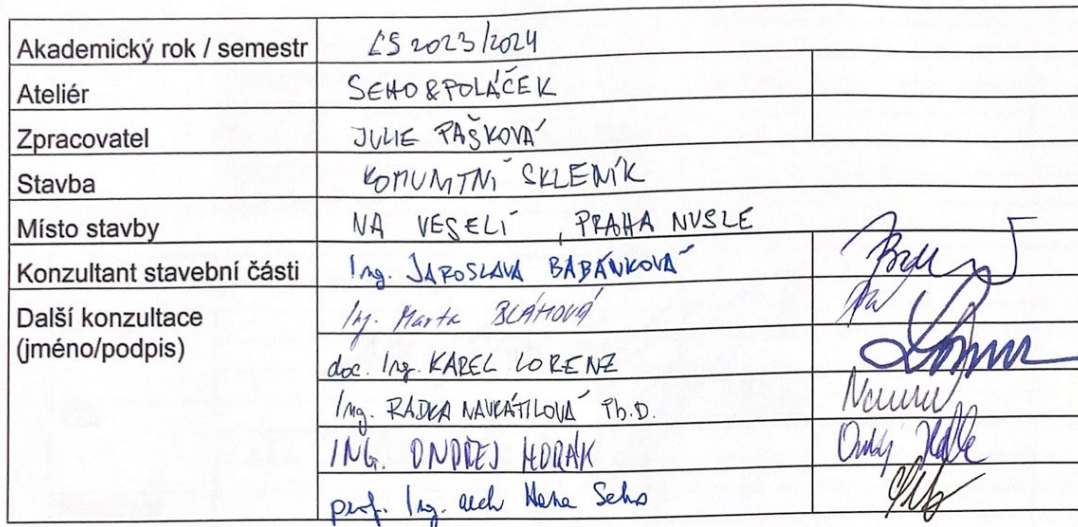 Akademický rok / semestr LS 2023/2024
Ateliér SEHO & POLÁČEK
Zpracovatel JULIE PAŠKOVÁ
Stavba KOMUNITNÍ SKLENÍK
Místo stavby NA VESELÍ, PRAHA NUSLE
Konzultant stavební části Ing. JAROSLAVA BABÁNKOVÁ
Další konzultace Ing. Marta BLÁHOVÁ
(jméno/podpis)
doc. Ing. KAREL LORENZ
Ing. RADKA NAVRÁTILOVÁ Ph.D.
ING. ONDŘEJ HORÁK
prof. Ing. arch Hana Seho